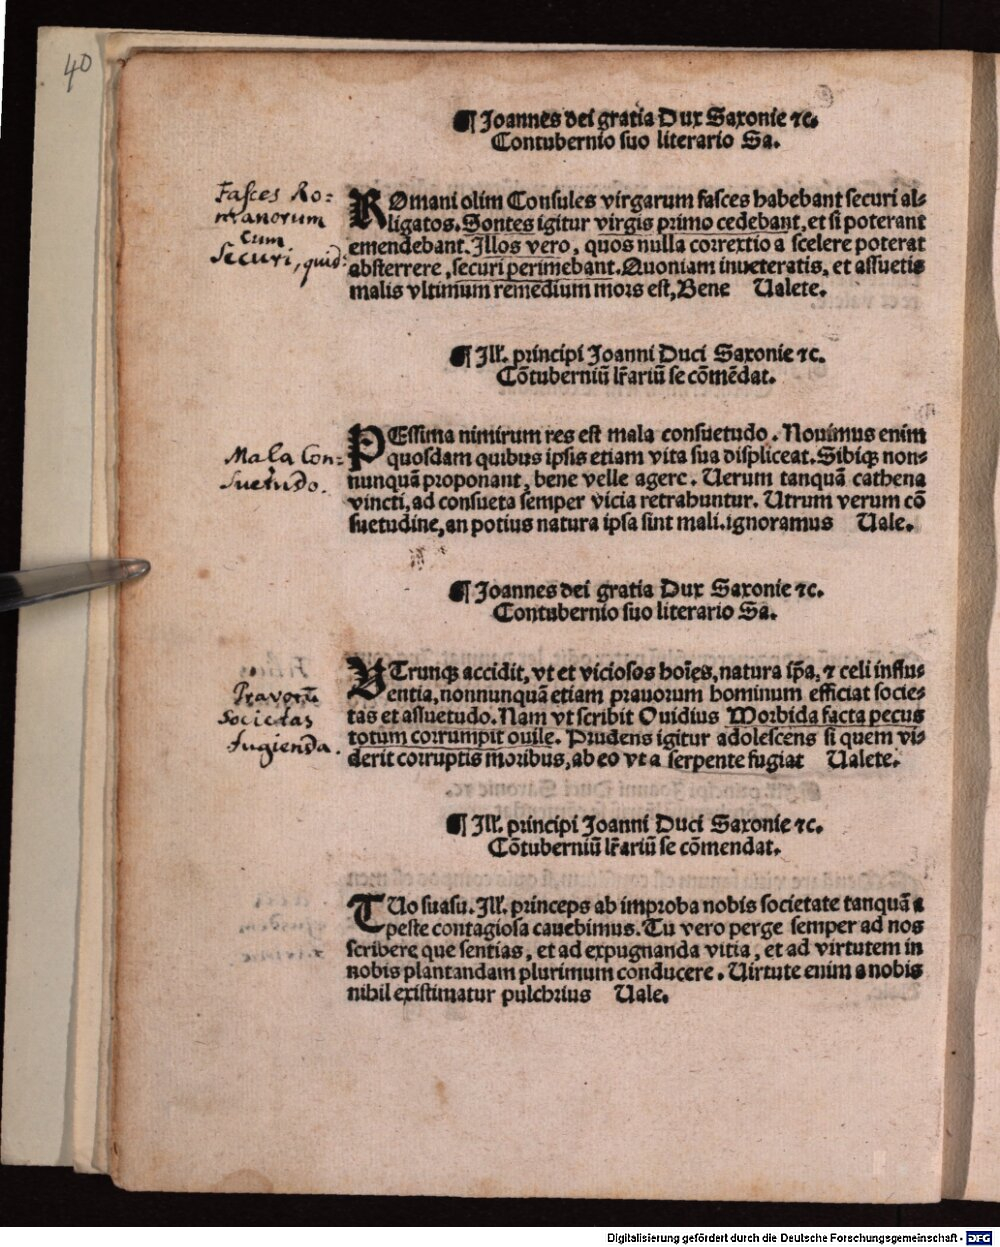 40
¶ Joannes dei gratia Dux Saxonie ⁊c.
Contubernio suo literario Sa.
Fasces Ro-
manorum
cum
Securi, quid.
ROmani olim Consules virgarum fasces habebant securi al-
ligatos. Sontes igitur virgis primo cedebant, et si poterant
emendebant. Illos vero, quos nulla corrextio a scelere poterat
absterrere, securi perimebant. Quoniam inveteratis, et assuetis
malis vltimum remedium mors est, Bene Ualete.
¶ Ill. principi Joanni Duci Saxonie ⁊c.
Cōtuberniū lr̄ariū se cōmēdat.
Mala Con-
suetudo.
PEssima nimirum res est mala consuetudo. Nouimus enim
quosdam quibus ipsis etiam vita sua displiceat. Sibiqꝫ non-
nunquā proponant, bene velle agere. Uerum tanquā cathena
vincti, ad consueta semper vicia retrahuntur. Utrum verum cō
suetudine, an potius natura ipsa sint mali. ignoramus Uale.
¶ Joannes dei gratia Dux Saxonie ⁊c.
Contubernio suo literario Sa.
Pravorū
Societas
fugienda.
VTrunqꝫ accidit, vt et viciosos hoīes, natura ip̄a, ⁊ celi influ-
entia, nonnunquā etiam prauorum hominum efficiat socie-
tas et assuetudo. Nam vt scribit Ouidius Morbida facta pecus
totum corrumpit ouile. Prudens igitur adolescens si quem vi-
derit corruptis moribus, ab eo vt a serpente fugiat Ualete.
¶ Ill. principi Joanni Duci Saxonie ⁊c.
Cōtuberniū lr̄ariū se cōmendat.
TUo suasu. Ill. princeps ab improba nobis societate tanquā a
peste contagiosa cauebimus. Tu vero perge semper ad nos
scribere que sentias, et ad expugnanda vitia, et ad virtutem in
nobis plantandam plurimum conducere. Uirtute enim a nobis
nihil existimatur pulchrius Uale.
Digitalisierung gefördert durch die Deutsche Forschungsgemeinschaft - DFG